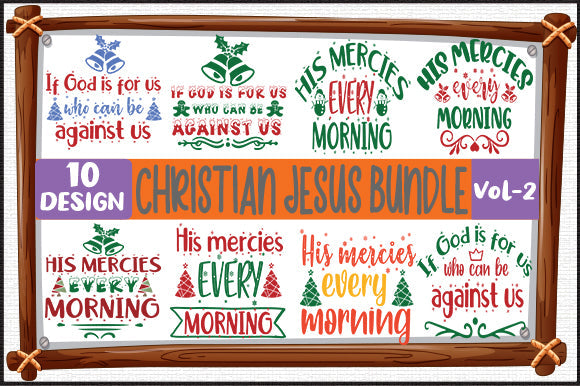 If God is for us
who can be
against us
IF GOD IS FOR US
WHO CAN BE
AGAINST US
HIS MERCIES
EVERY
MORNING
HIS MERCIES
every
MORNING
10
DESIGN
CHRISTIAN JESUS BUNDLE
VOL-2
HIS MERCIES
EVERY
MORNING
His mercies
EVERY
MORNING
His mercies
every
morning
If God is for us
who can be
against us